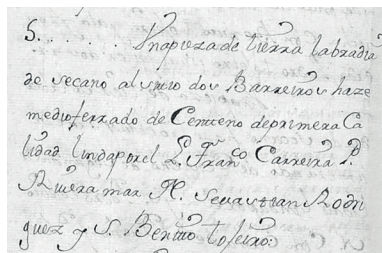 5. . . . . . Vna pieza de tierra labradia
de secano al sitio dos Barreiros haze
medio ferrado de Centeno de primera Ca
lidad linda por el L. Franco Carreira P.
Riuera mar N. Seuastian Rodri
guez y S. Benito tofeiro: